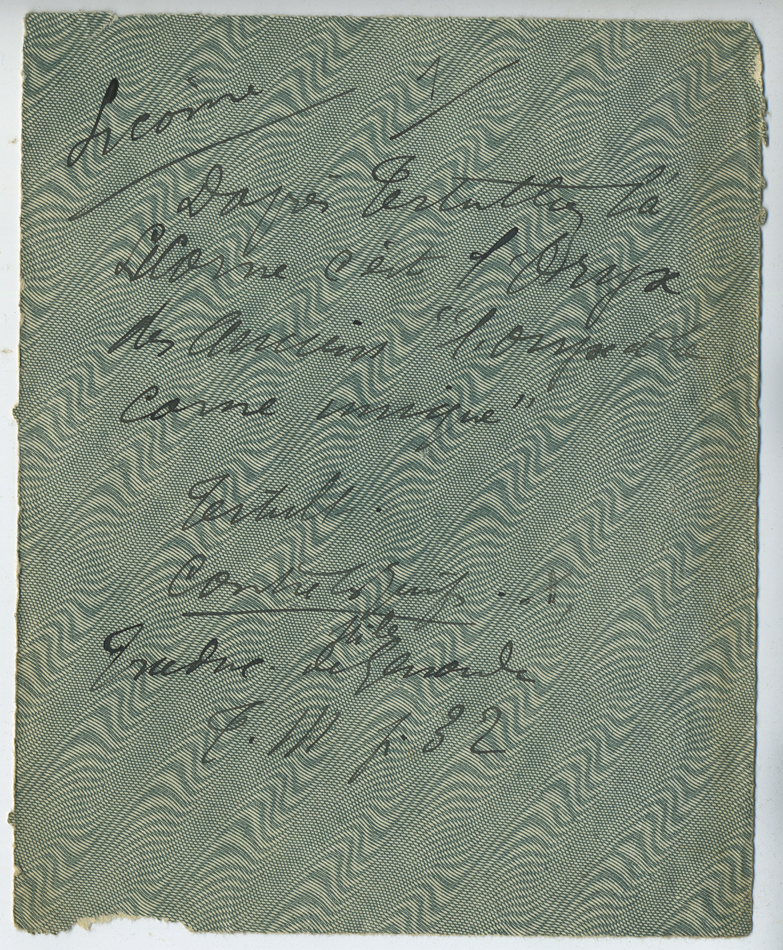 Licorne 1
D'après Tertullien la
Licorne c'est l'Oryx
des Anciens "l'oryx à la
corne unique"
Tertull.
Contre les Juifs
Traduc. de Genoude
T. III p. 32